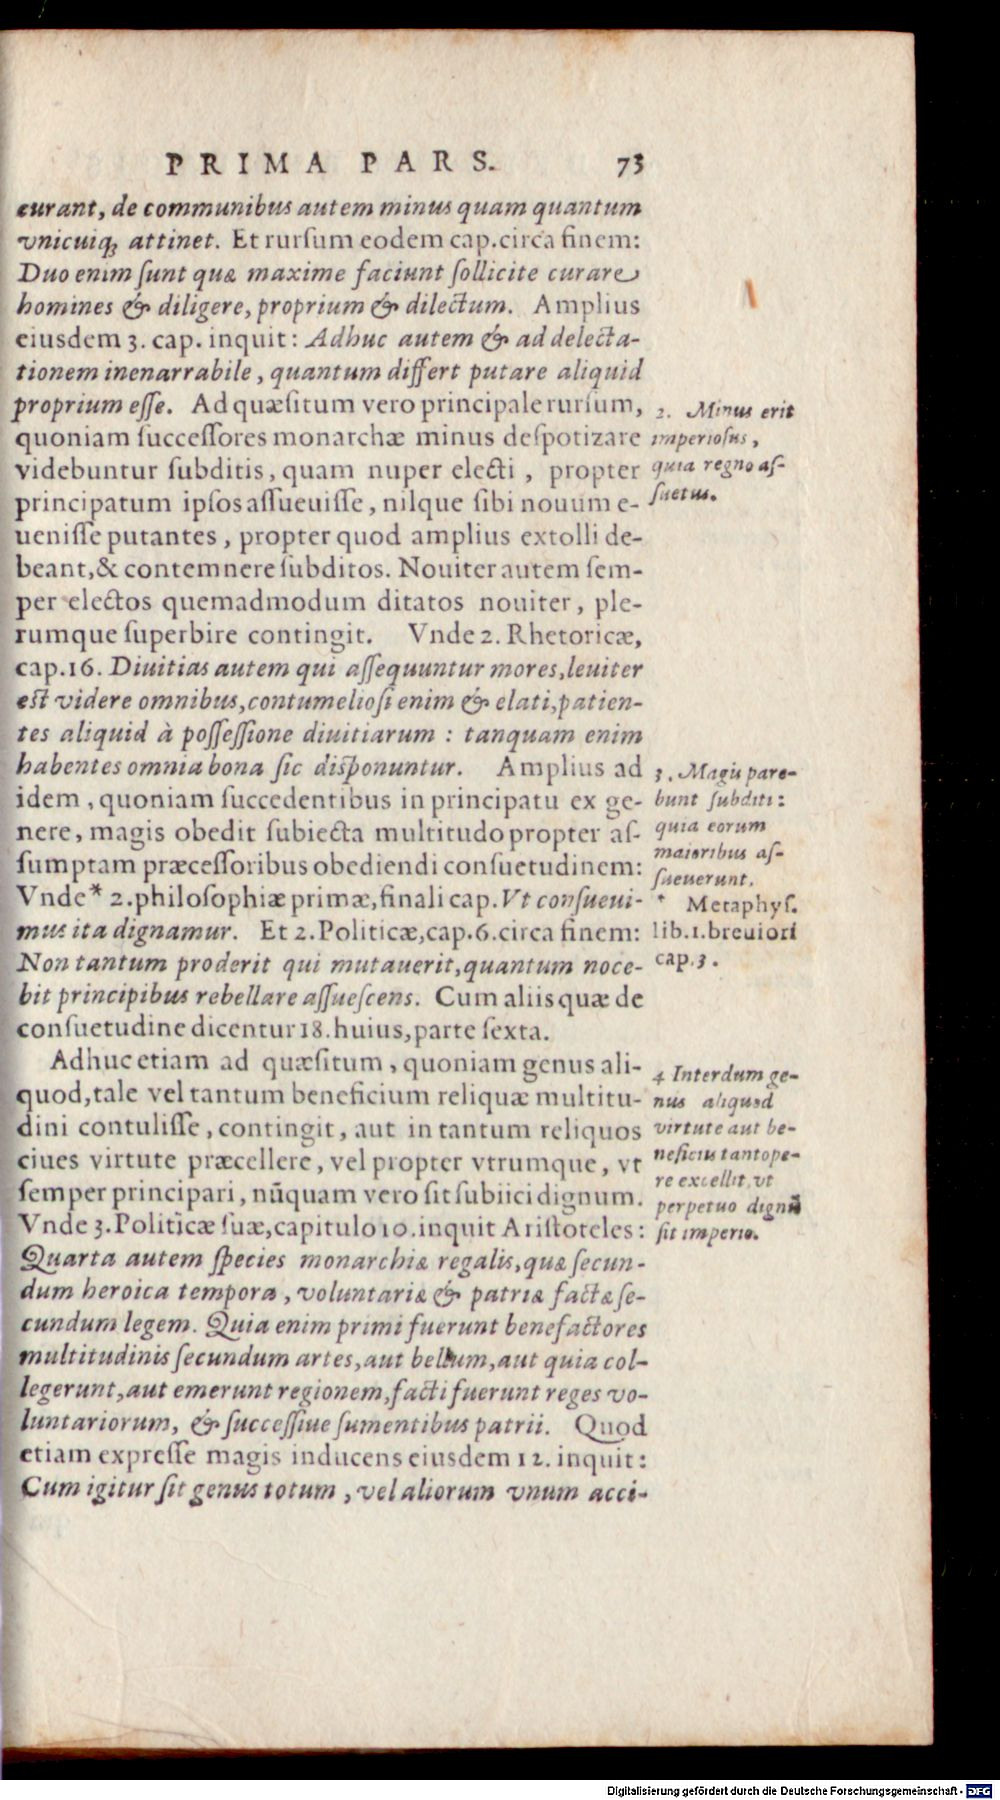 PRIMA PARS. 73
curant, de communibus autem minus quam quantum
vnicuiq; attinet. Et rursum eodem cap. circa finem:
Duo enim sunt quæ maxime faciunt sollicite curare
homines & diligere, proprium & dilectum. Amplius
eiusdem 3. cap. inquit: Adhuc autem & ad delecta-
tionem inenarrabile, quantum differt putare aliquid
proprium esse. Ad quæsitum vero principale rursum,
quoniam successores monarchæ minus despotizare
videbuntur subditis, quam nuper electi, propter
principatum ipsos assueuisse, nilque sibi nouum e-
uenisse putantes, propter quod amplius extolli de-
beant, & contemnere subditos. Nouiter autem sem-
per electos quemadmodum ditatos nouiter, ple-
rumque superbire contingit. Vnde 2. Rhetoricæ,
cap. 16. Diuitias autem qui assequuntur mores, leuiter
est videre omnibus, contumeliosi enim & elati, patien-
tes aliquid à possessione diuitiarum: tanquam enim
habentes omnia bona sic disponuntur. Amplius ad
idem, quoniam succedentibus in principatu ex ge-
nere, magis obedit subiecta multitudo propter as-
sumptam præcessoribus obediendi consuetudinem:
Vnde* 2. philosophiæ primæ, finali cap. Vt consueui-
mus ita dignamur. Et 2. Politicæ, cap. 6. circa finem:
Non tantum proderit qui mutauerit, quantum noce-
bit principibus rebellare assuescens. Cum aliis quæ de
consuetudine dicentur 18. huius, parte sexta.
Adhuc etiam ad quæsitum, quoniam genus ali-
quod, tale vel tantum beneficium reliquæ multitu-
dini contulisse, contingit, aut in tantum reliquos
ciues virtute præcellere, vel propter vtrumque, vt
semper principari, nūquam vero sit subiici dignum.
Vnde 3. Politicæ suæ, capitulo 10. inquit Aristoteles:
Quarta autem species monarchiæ regalis, quæ secun-
dum heroica tempora, voluntariæ & patriæ factæ se-
cundum legem. Quia enim primi fuerunt benefactores
multitudinis secundum artes, aut bellum, aut quia col-
legerunt, aut emerunt regionem, facti fuerunt reges vo-
luntariorum, & successiue sumentibus patrii. Quod
etiam expresse magis inducens eiusdem 12. inquit:
Cum igitur sit genus totum, vel aliorum vnum acci-
2. Minus erit
imperiosus,
quia regno as-
suetus.
3. Magis pare-
bunt subditi:
quia eorum
maioribus as-
sueuerunt.
* Metaphys.
lib. 1. breuiori
cap. 3.
4 Interdum ge-
nus aliquod
virtute aut be-
neficiis tantope-
re excellit, vt
perpetuo dignū
sit imperio.
Digitalisierung gefördert durch die Deutsche Forschungsgemeinschaft - DFG